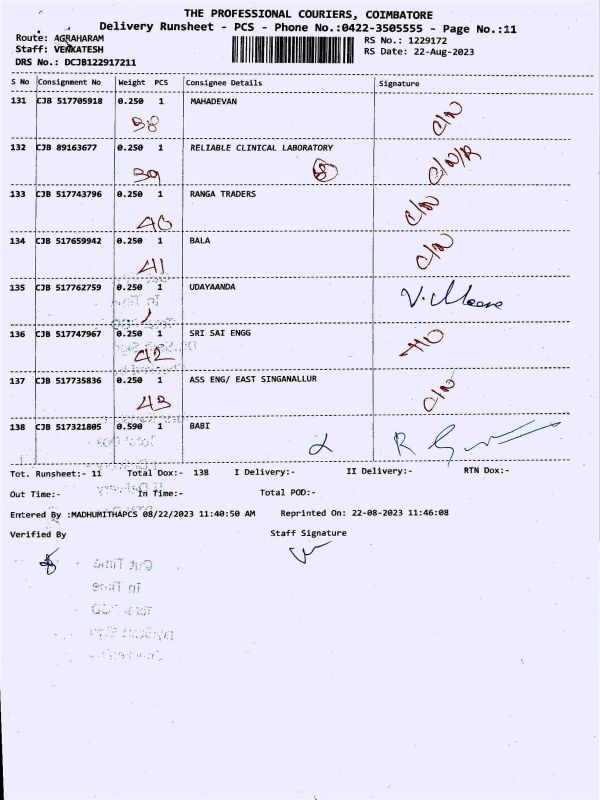 THE PROFESSIONAL COURIERS, COIMBATORE
Delivery Runsheet - PCS - Phone No.:0422-3505555 - Page No.:11
Route: AGRAHARAM RS No.: 1229172
Staff: VENKATESH RS Date: 22-Aug-2023
DRS No.: DCJB122917211
S No Consignment No Weight PCS Consignee Details Signature
131 CJB 517705918 0.250 1 MAHADEVAN C/N
38
132 CJB 89163677 0.250 1 RELIABLE CLINICAL LABORATORY C/N/R
39
133 CJB 517743796 0.250 1 RANGA TRADERS C/N
40
134 CJB 517659942 0.250 1 BALA C/N
41
135 CJB 517762759 0.250 1 UDAYAANDA
136 CJB 517747967 0.250 1 SRI SAI ENGG
42
137 CJB 517735836 0.250 1 ASS ENG/ EAST SINGANALLUR C/N
43
138 CJB 517321805 0.590 1 BABI
Tot. Runsheet:- 11 Total Dox:- 138 I Delivery:- II Delivery:- RTN Dox:-
Out Time:- In Time:- Total POD:-
Entered By :MADHUMITHAPCS 08/22/2023 11:40:50 AM Reprinted On: 22-08-2023 11:46:08
Verified By Staff Signature
Out Time
In Time